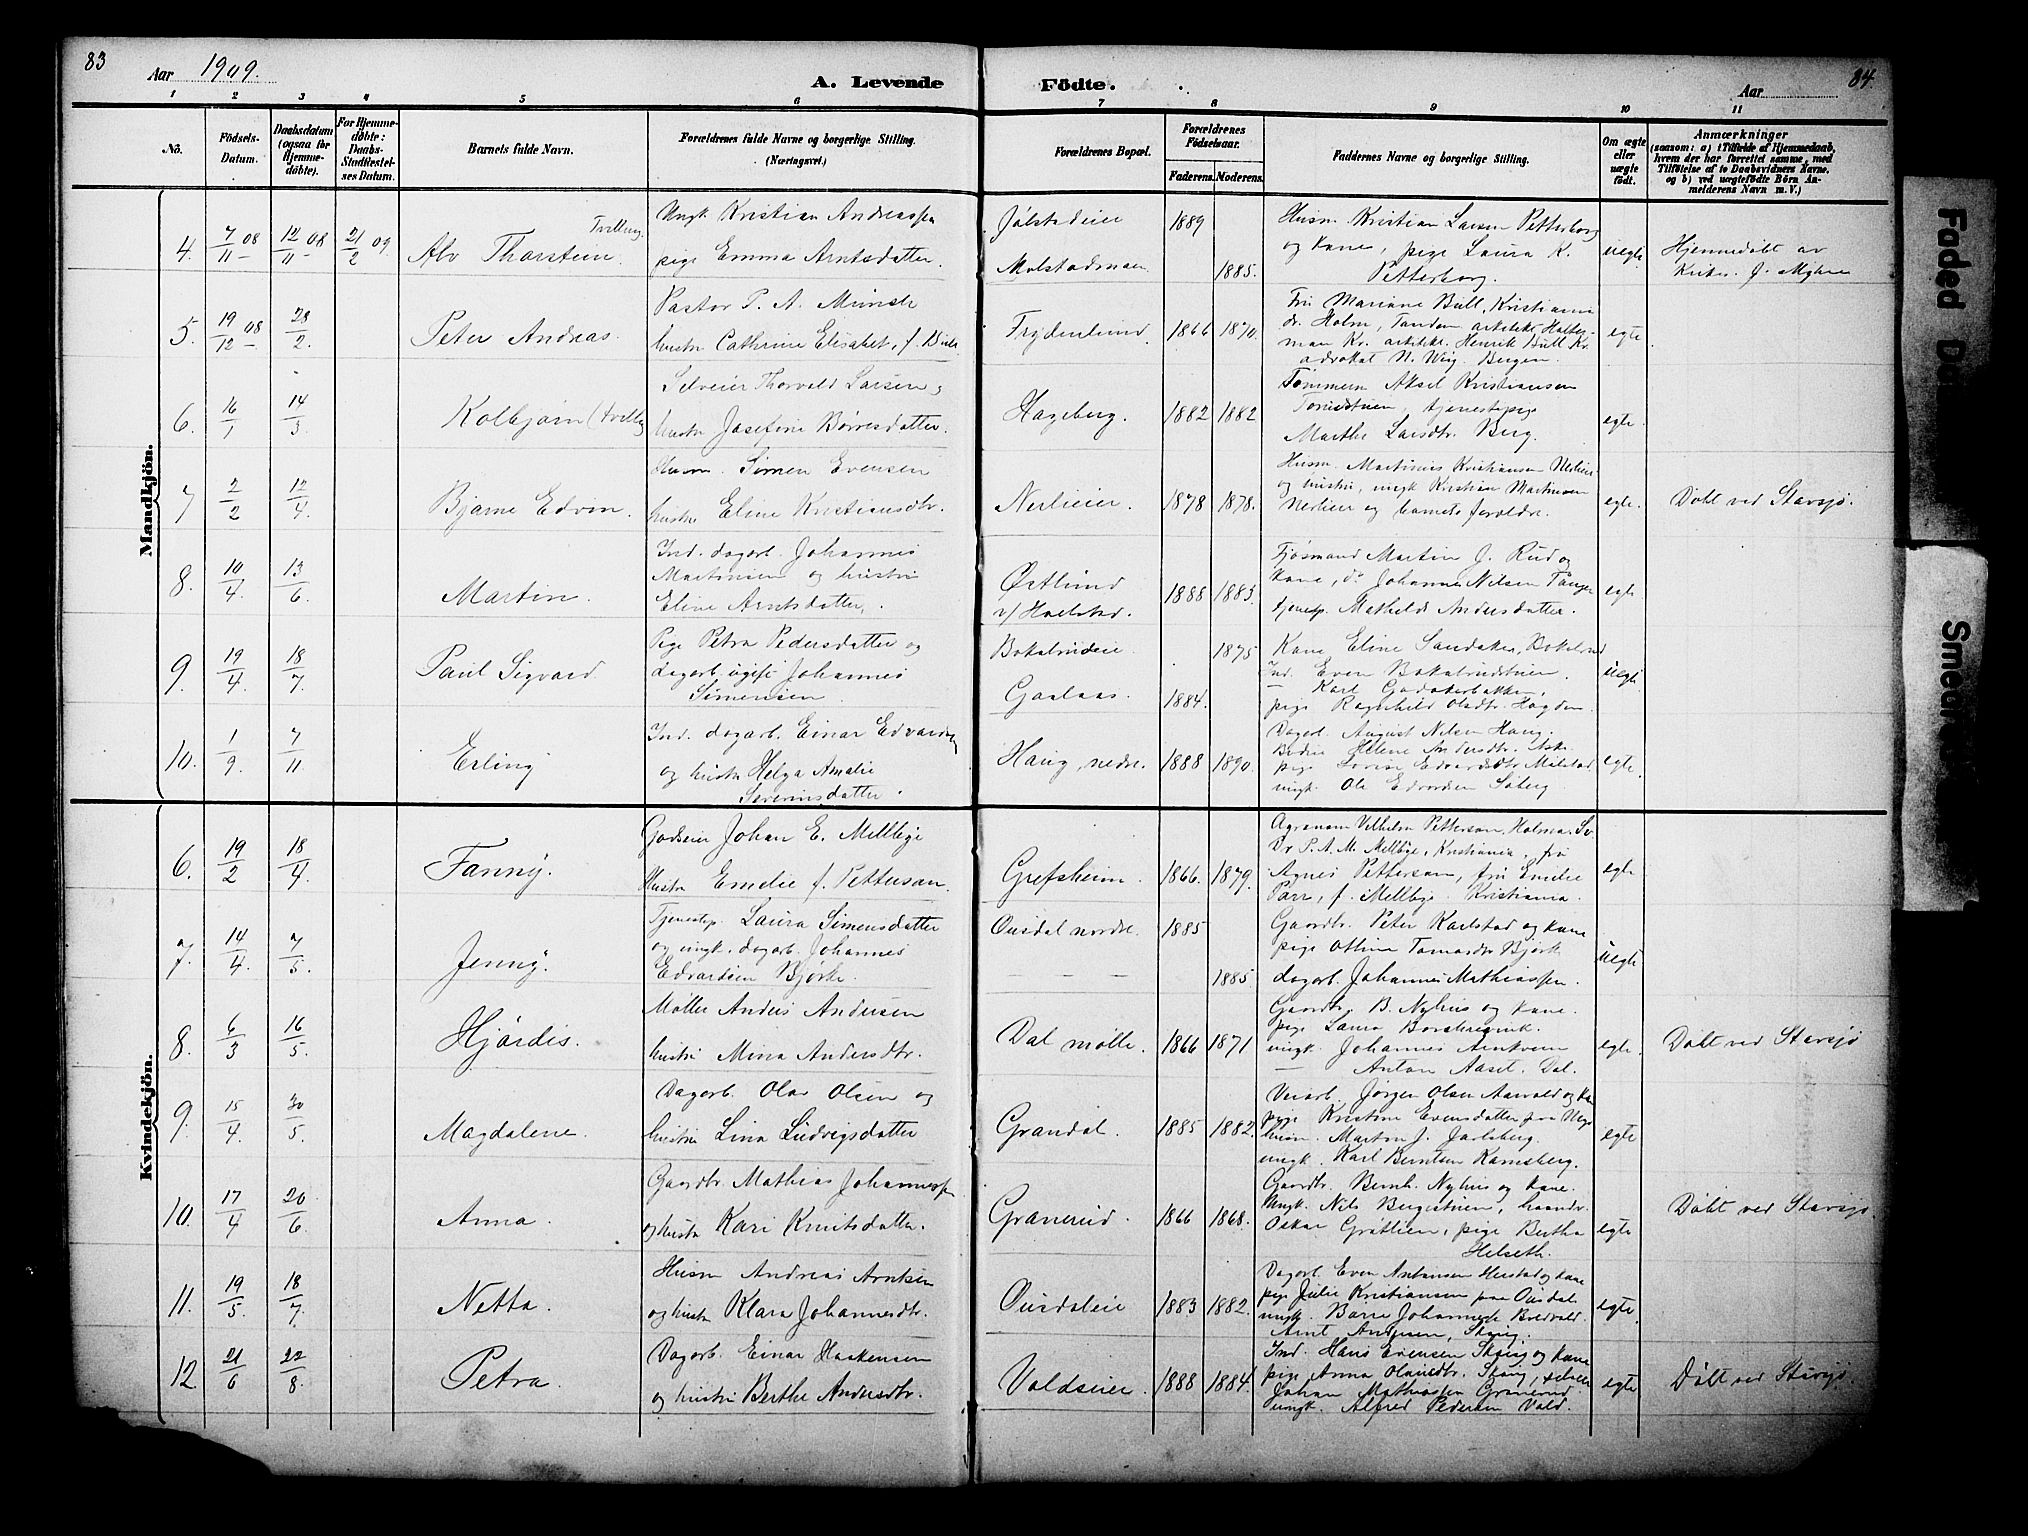 83
Aar 1909.
A. Levende
Födte.
Aar
84
1 2 3 4 5 6 7 8 9 10 11
No.
Födsels-Datum.
Daabsdatum (ogsaa for Hjemmedöbte).
For Hjemmedöbte: Daabs-Stadfæstelses Datum.
Barnets fulde Navn.
Forældrenes fulde Navne og borgerlige Stilling.
(Næringsvei.)
Forældrenes Bopæl.
Forældrenes Födselsaar.
Faderens. Moderens.
Faddernes Navne og borgerlige Stilling.
Om ægte eller uægte födt.
Anmærkninger
(saasom: a) i Tilfælde af Hjemmedaab, hvem der har forrettet samme, med Tilföielse af to Daabsvidners Navne, og b) ved uægtefödte Börn Anmelderens Navn m. V.)
Mandkjön.
4. 7/11 08 12/11 08 21/2 09 Alv Thorstein. Tvilling.
Ungk Kristian Andreassen
pige Emma Arntsdatter.
Jølstadeier 1889
Molstadmoen 1885.
Husm. Kristian Larsen Petterborg
og Kane, pige Laura K.
Petterborg.
uegte
Hjemmedøbt av
Kirkes. J. Myhre
5. 19/12 08 28/2 Peter Andreas.
Pastor P. A. Münch
hustru Cathrine Elisabet, f. Bull.
Frydenlund. 1866 1870.
Fru Mariane Bull, Kristiania
dr. Holm, Tandem arkitekt Holter-
man Kr. arkitekt. Henrik Bull Kr.
advokat N. Wiig. Bergen.
egte
6. 16/1 14/3 Kolbjørn (tvilling
Selveier Thorvald Larsen,
hustru Josefine Børresdatter.
Hageberg. 1882 1882
Tømmerm Aksel Kristiansen
tjenestepige
Marthe Larsdtr. Berg.
egte.
7 2/2 12/4 Bjarne Edvin.
Husm. Simen Evensen
hustru Eline Kristiansdtr.
Nerlieier. 1878 1878.
Husm. Martinius Kristiansen Nerlieie-
og hustru, ungk Kristian Martinsen
Nerlieier og barnets foreldre.
egte.
Døbt ved Stavsjø.
8. 10/4 13/6 Martin.
Ind. dagarb. Johannes
Martinsen og hustru
Eline Arntsdatter.
Østlund
v/ Hoelstad. 1888 1883.
Fjøsmand Martin J. Rud og
Kane, do Johannes Nilsen Tanger
tjenesp. Mathilde Andersdatter.
egte
9. 19/4 18/7 Paul Sigvard
Pige Petra Pedersdatter og
dagarb. ugift Johannes
Simensen
Bokalrudeie 1875
Gaalaas. 1884.
Kane Eline Sandaker, Bokalrud
Ind. Even Bokalrudstuen.
— Karl Godakerbakken,
pige Ragnhild Olsdtr. Hagden.
uegte
10. 1/9 7/11 Erling
Ind. dagarb. Einar Edvardsen
og hustru Helga Amalie
Severinsdatter.
Haug, nedre. 1888 1890.
Dagarb. August Nilsen Haug.
Budeie Helene Andersdtr. Ask.
pige Lovise Edvardsdtr. Mælstad,
ungk. Ole Edvardsen Søberg
egte.
Kvindekjön.
6. 19/2 18/4 Fanny.
Godseier Johan E. Mellbye
Hustru Emelie f. Pettersen.
Grefsheim. 1866. 1879.
Agronom Vilhelm Petterson, Holma, Sv.
Dr P. A. M. Mellbye, Kristiania, fru
Agnes Petterson, fru Emelie
Parr, f. Mellbye. Kristiania.
egte
7. 14/4 7/5. Jenny.
Tjenestep. Laura Simensdatter
og ungk. dagarb. Johannes
Edvardsen Bjørke.
Ousdal nordre. 1885
— — — 1885.
Gaardbr. Peter Karlstad og Kane
pige Othine Tomasdtr Bjørk
dagarb. Johannes Mathiassen.
uegte
8. 6/3 16/5. Hjørdis.
Møller Anders Andersen
hustru Mina Andersdtr.
Dal mølle. 1866 1871
Gaardbr. B. Nyhus og Kane.
pige Laura Borchgrevink.
ungk. Johannes Arnkvern
— Anton Aaset. Dal.
egte.
Døbt ved Stavsjø
9. 15/4 30/5. Magdalene.
Dagarb. Olav Olsen og
hustru Lina Ludvigsdatter
Grandal. 1885 1882.
Veiarb. Jørgen Olsen Aarvold og Kane
pige Kristine Evensdatter
husm. Martin J. Jarlsberg.
ungk. Karl Berntsen Kamsberg.
egte
10. 17/4 20/6. Anna.
Gaardbr Mathias Johannessen
og hustru Kari Knutsdatter.
Granerud. 1866 1868.
Gaardbr. Bernh. Nyhus og Kane.
Ungk. Nils Bergestuen, haandv.
Oskar Grøtlien, pige Bertha
Helseth.
egte
Døbt ved Stavsjø.
11. 19/5 18/7. Netta.
Husm Andreas Arntsen
og hustru Klara Johannesdtr.
Ousdaleie 1883 1882.
Dagarb. Even Antonsen Herstad og Kane
pige Julie Kristiansen paa Ousdal
ungk. Børre Johannesen Boldvald.
Arnt Andersen, Skaug.
egte
12 21/6 22/8. Petra.
Dagarb. Einar Haakensen
og hustru Berthe Andersdtr.
Voldseier. 1888 1884.
Ind. Hans Evensen Skaug og Kane
pige Anna Olausdtr. Skaug, selveier
Johan Mathiassen Granerud
ungk. Alfred Pedersen Vold.
egte
Døbt ved Stavsjø
Faded D
Smed